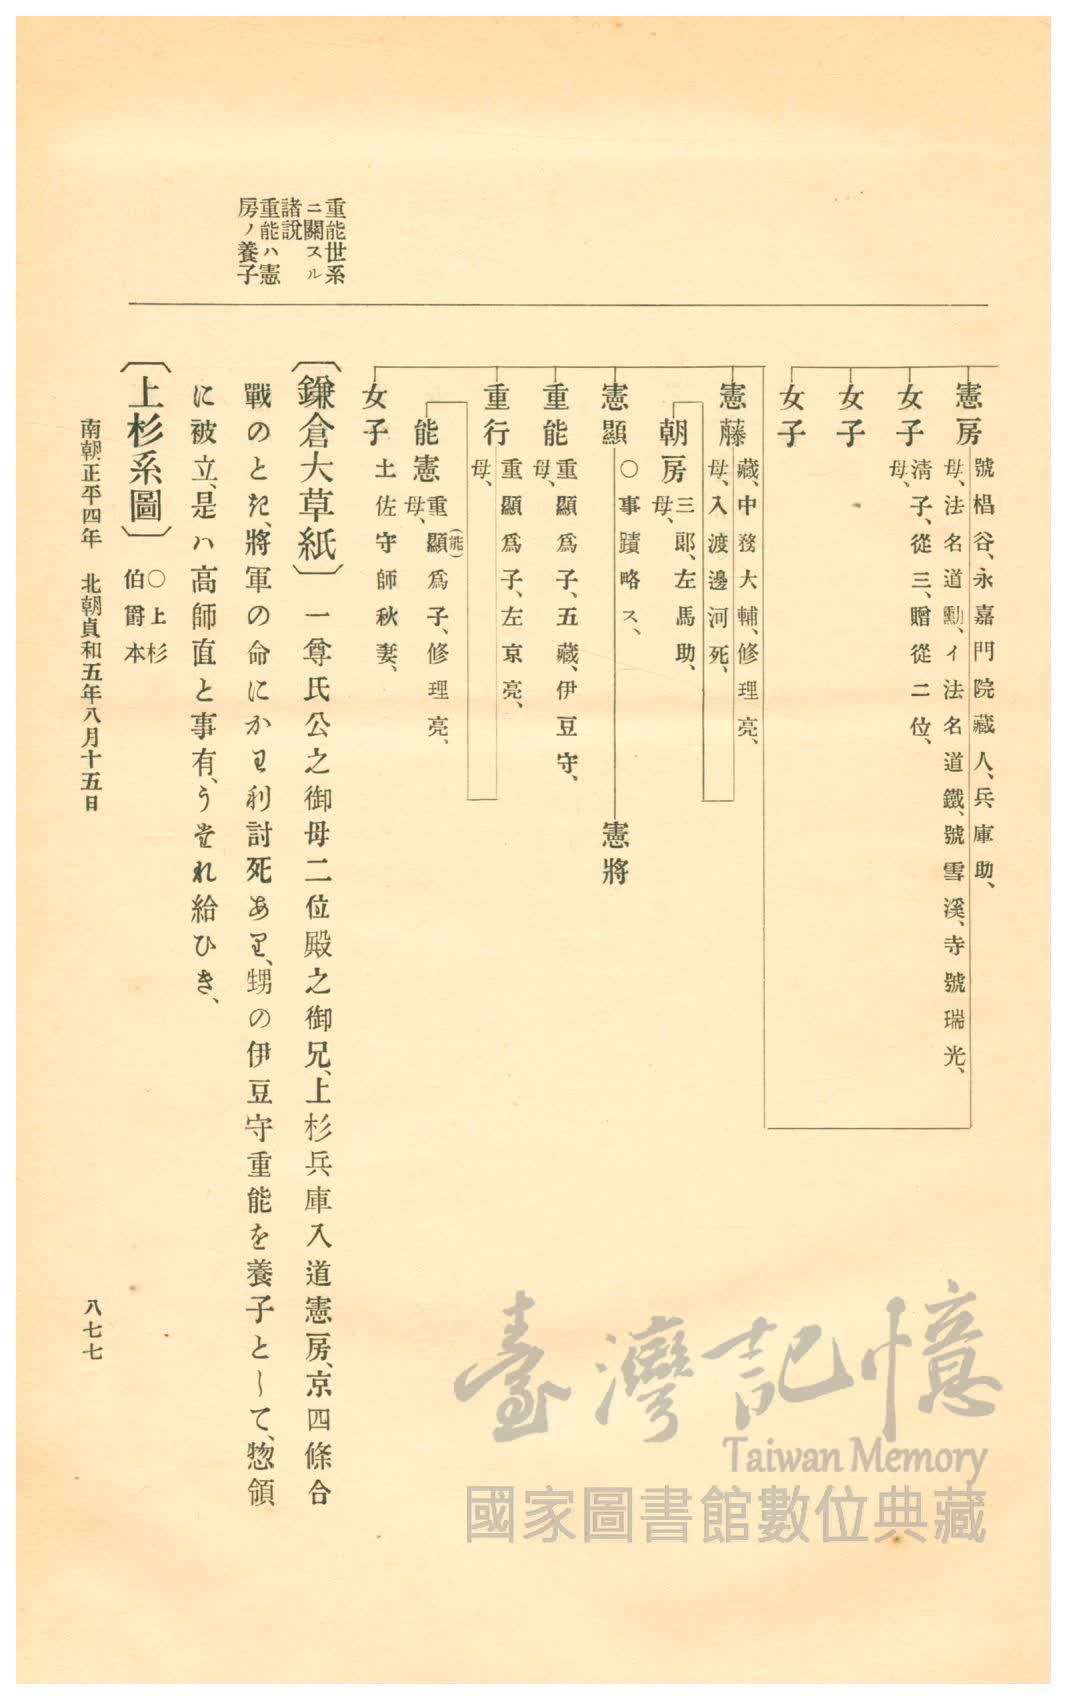 重能世系
ニ關スル
諸說
重能ハ憲
房ノ養子
憲房
號椙谷、永嘉門院藏人、兵庫助、
母、法名道勳、イ法名道鐵、號雪溪、寺號瑞光、
女子
淸子、從三、贈從二位、
母、
女子
女子
憲藤
藏、中務大輔、修理亮、
母、入渡邊河死、
朝房
三郎、左馬助、
母、
憲顯
○事蹟略ス、
憲將
重能
重顯爲子、五藏、伊豆守、
母、
重行
重顯爲子、左京亮、
母、
能憲
重顯(能)爲子、修理亮、
母、
女子
土佐守師秋妻、
〔鎌倉大草紙〕 一尊氏公之御母二位殿之御兄、上杉兵庫入道憲房、京四條合
戰のとき、將軍の命にかわり討死あり、甥の伊豆守重能を養子として、惣領
に被立、是ハ高師直と事有、うたれ給ひき、
〔上杉系圖〕
○上杉
伯爵本
南朝正平四年 北朝貞和五年八月十五日
八七七
臺灣記憶
Taiwan Memory
國家圖書館數位典藏